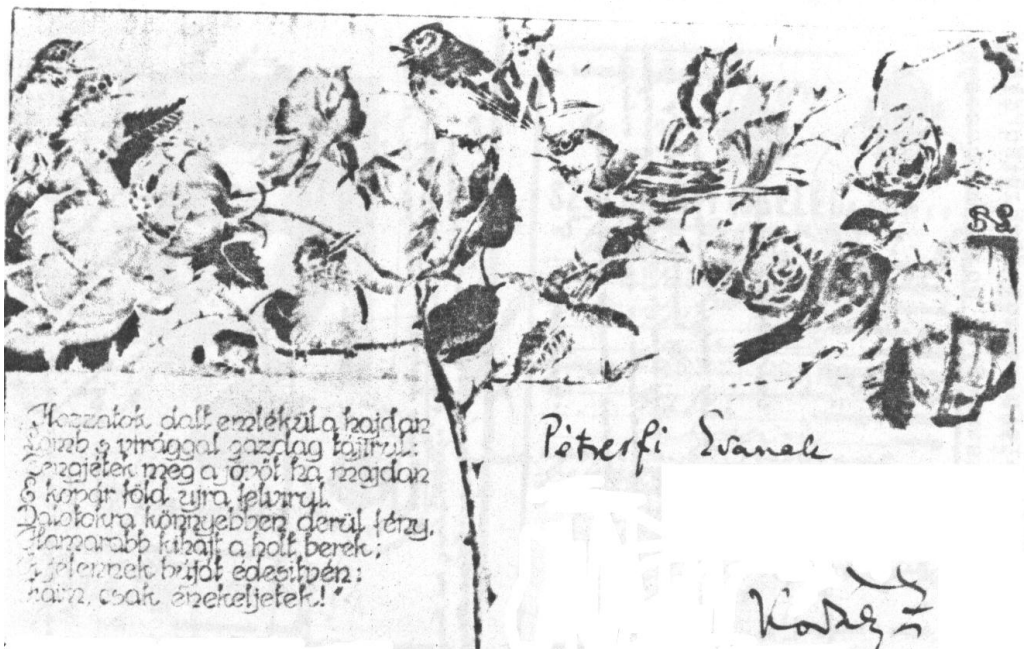 BL
Hozzatok dalt emlékül a hajdan
Lomb s virággal gazdag tájirul:
Zengjetek meg a jövöt, ha majdan
E kopár föld ujra felvirul.
Dalotokra könnyebben derül fény,
Hamarabb kihajt a holt berek;
A jelennek búját édesitvén:
Fiaim, csak énekeljetek!"
Péterfi Évának
Kodály Z